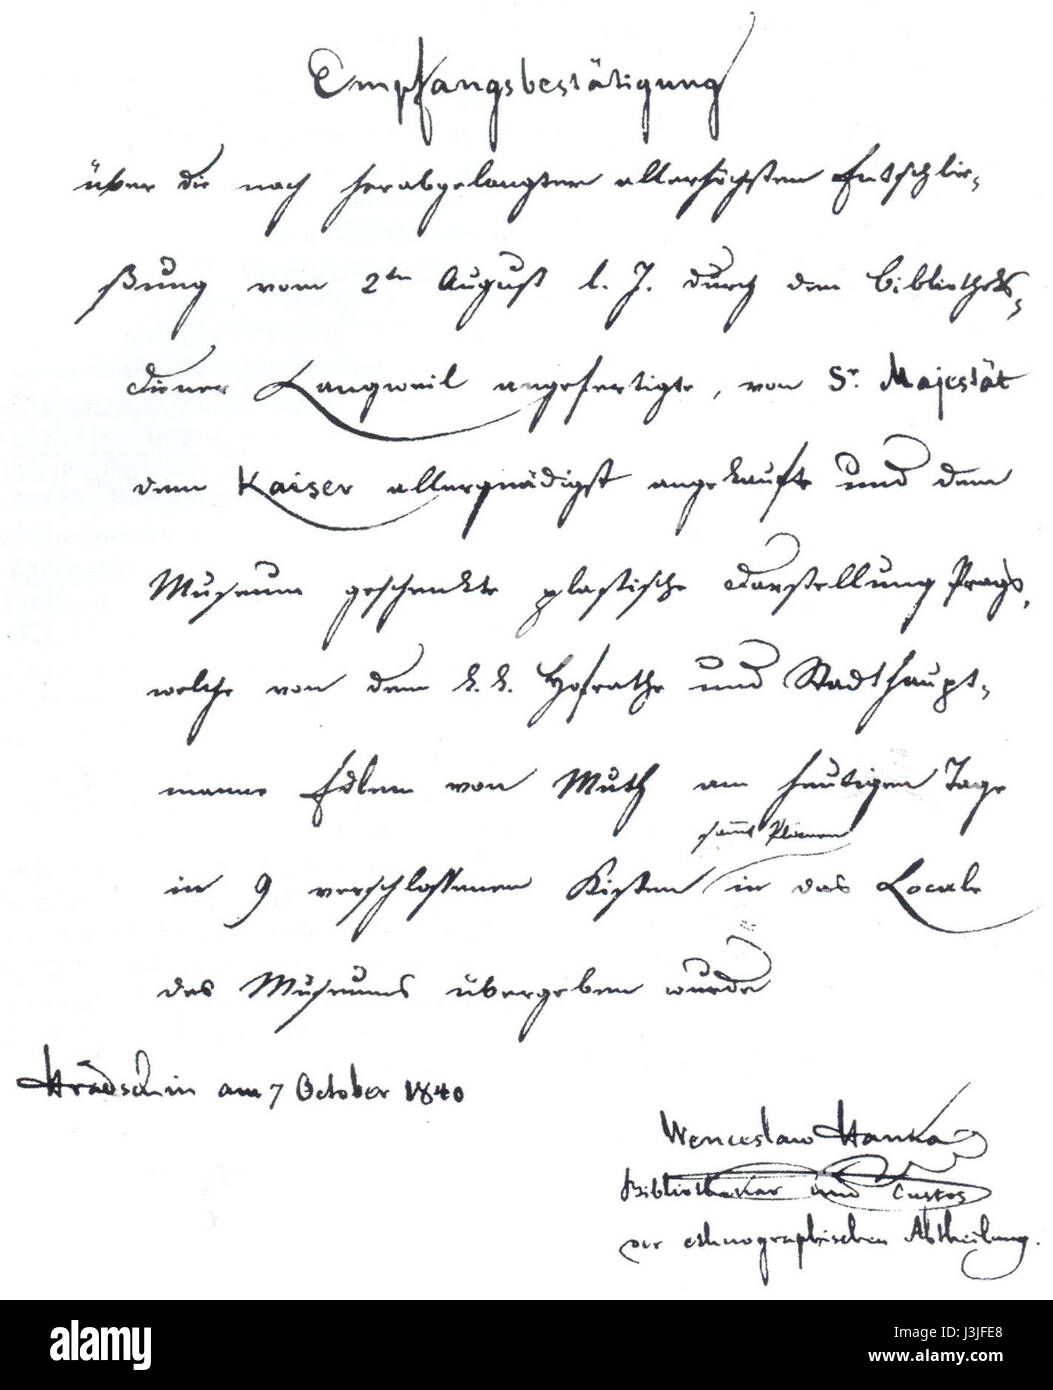 Empfangsbestätigung
über die nach herabgelangter allerhöchsten Entschlie-
ßung vom 2ten August l. J. durch den Bibliotheks-
diener Langweil angefertigte, von Sr. Majestät
dem Kaiser allergnädigst angekaufte und dem
Museum geschenkte plastische Darstellung Prags,
welche von dem k. k. Hofrathe und Stadthaupt-
manne Edlem von Muth am heutigen Tage
sammt Plänen
in 9 verschlossenen Kisten in das Locale
des Museums übergeben wurde
Hradschin am 7 October 1840
Wenceslaw Hanka
Bibliothekar und Custos
der ethnographischen Abtheilung.
alamy
Image ID: J3JFE8
www.alamy.com